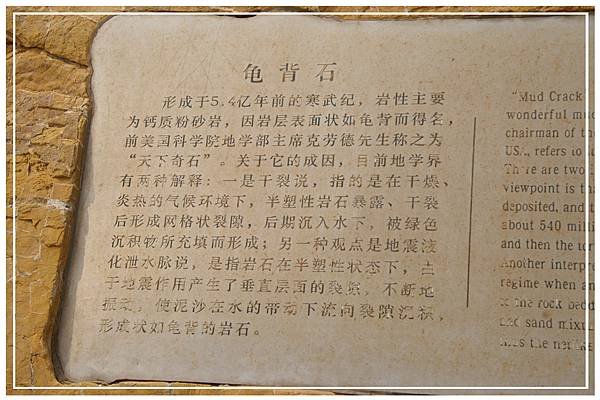 龟背石
形成于5.4亿年前的寒武纪，岩性主要
为钙质粉砂岩，因岩层表面状如龟背而得名，
前美国科学院地学部主席克劳德先生称之为
“天下奇石”。关于它的成因，目前地学界
有两种解释：一是干裂说，指的是在干燥、
炎热的气候环境下，半塑性岩石暴露、干裂
后形成网格状裂隙，后期沉入水下，被绿色
沉积物所充填而形成；另一种观点是地震液
化泄水脉说，是指岩石在半塑性状态下，由
于地震作用产生了垂直层面的裂隙，不断地
振动，使泥沙在水的带动下流向裂隙沉积，
形成状如龟背的岩石。
“Mud Crack
wonderful mud
chairman of the
USA, refers to
There are two
viewpoint is th
deposited, and t
about 540 milli
and then the tor
Another interpre
regime when an
of the rock bedd
and sand mixtu